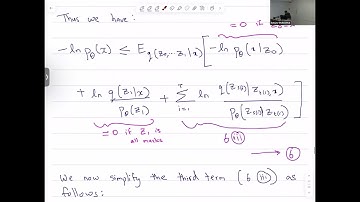 Thus we have:
= 0 if
-ln pθ(x) ≤ E q(z0,...z1|x) [ -ln pθ(x|z0)
+ ln q(z1|x) / pθ(z1) + Σ i=1 T ln q(zs(i)|zt(i),x) / pθ(zs(i)|zt(i)) ]
= 0 if z1 is
all masks
6 (iii)
→ 6
We now simplify the third term (6 (iii)) as
follows: